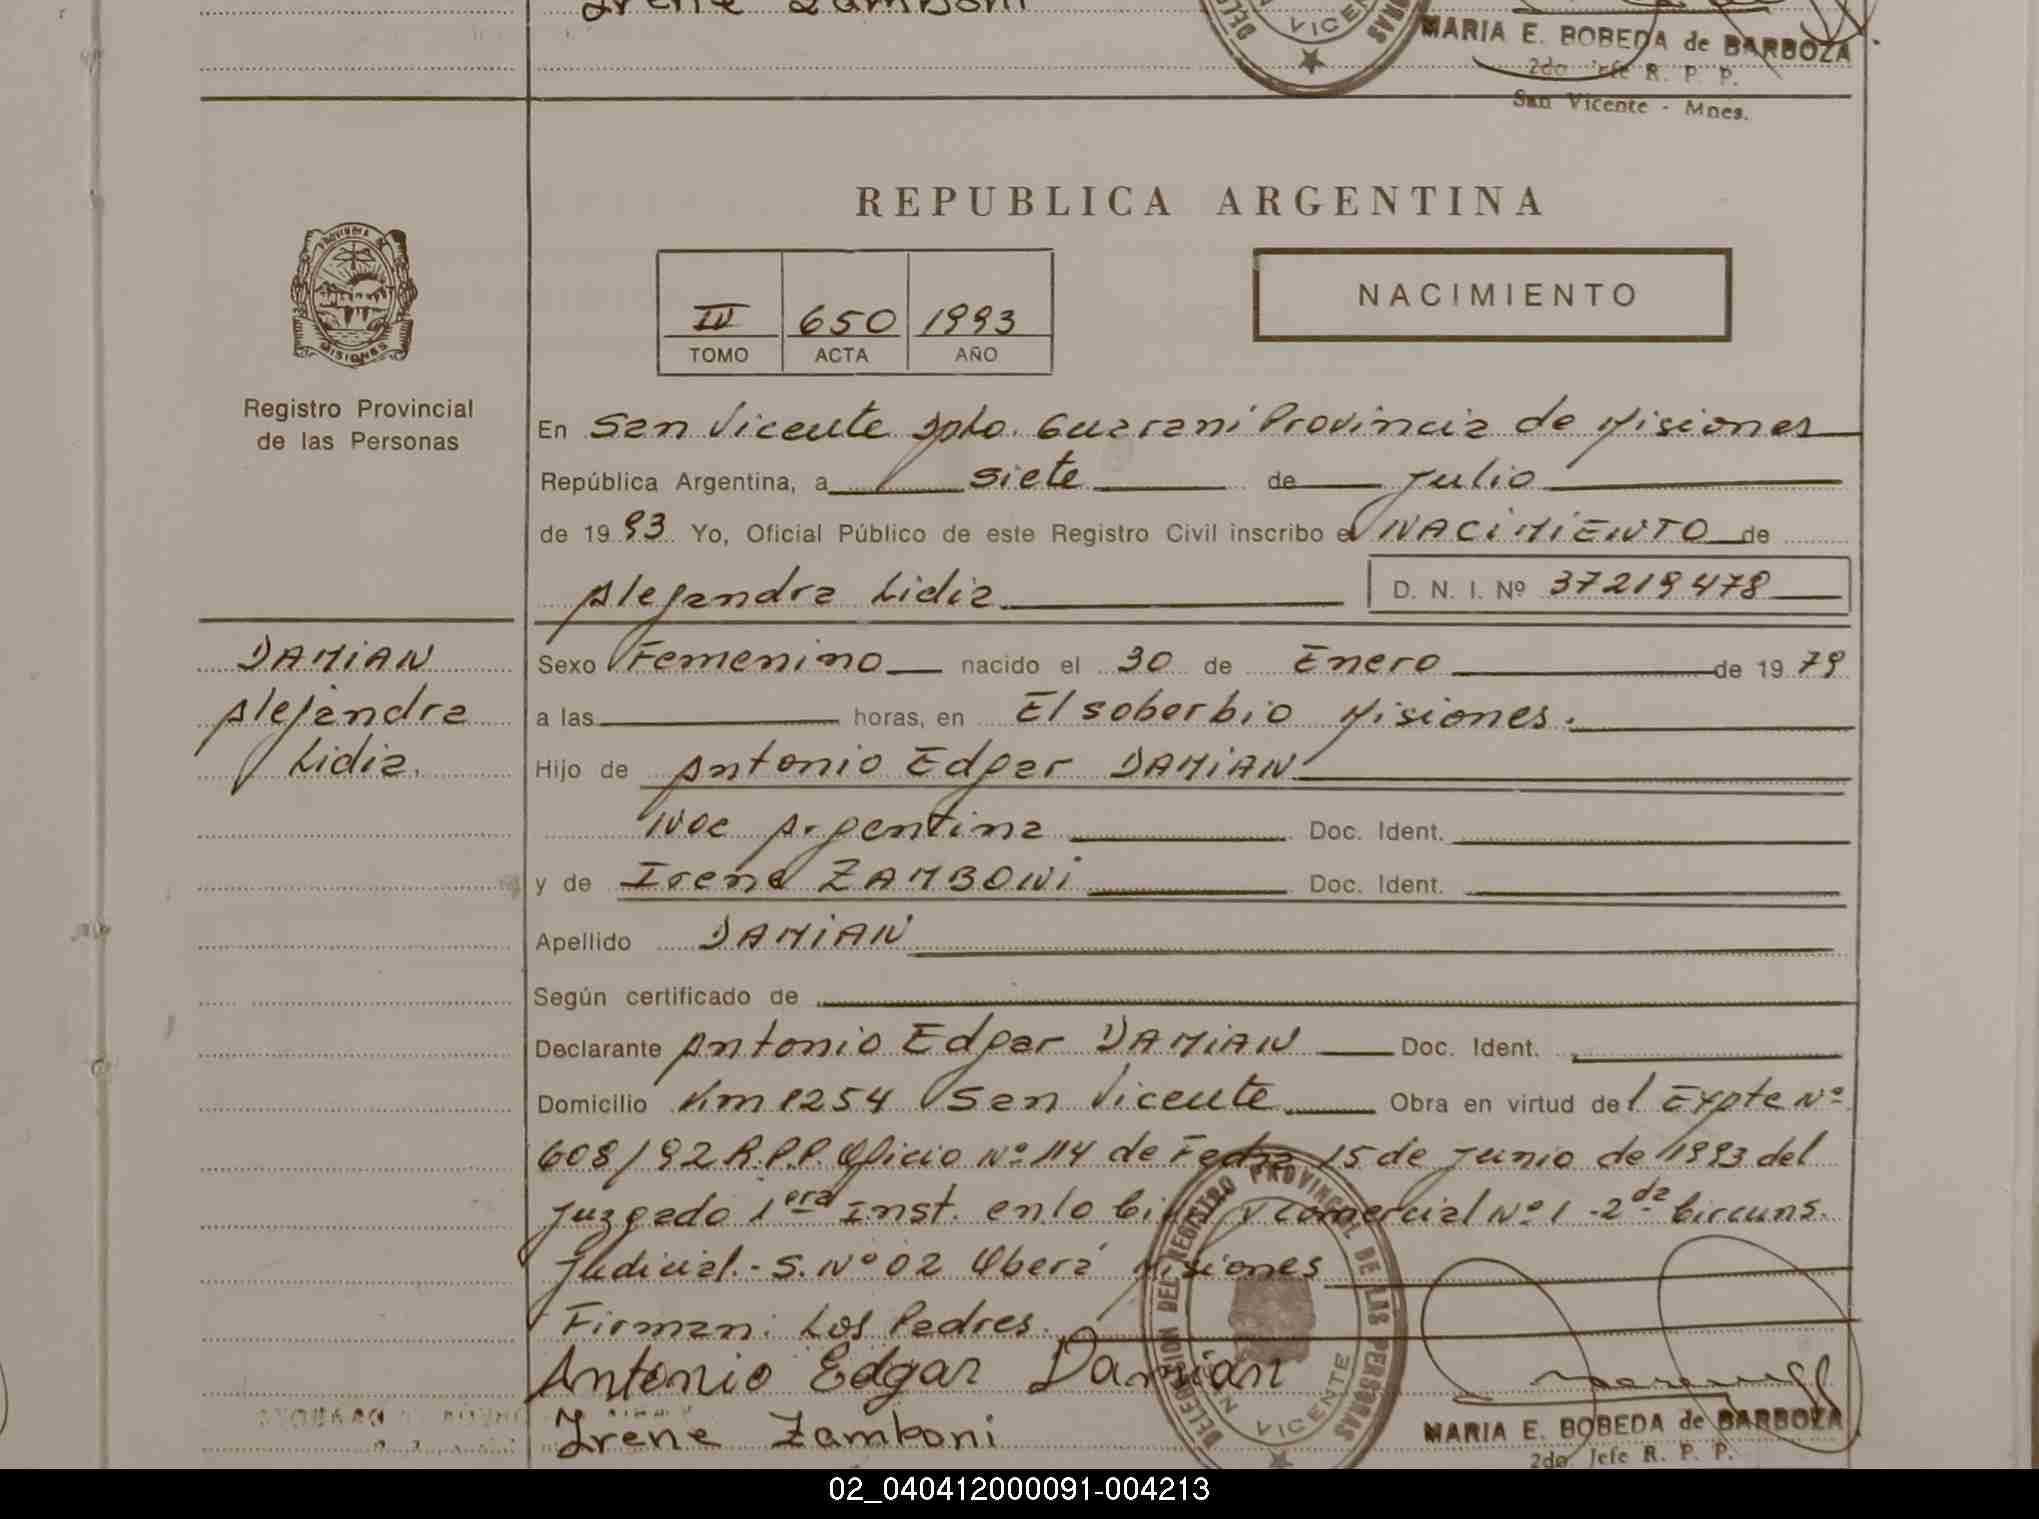 Irene Zamboni
MARIA E. BOBEDA de BARBOZA
2do Jefe R. P. P.
San Vicente - Mnes.
REPUBLICA ARGENTINA
PROVINCIA DE MISIONES
IV 650 1993
TOMO ACTA AÑO
NACIMIENTO
Registro Provincial
de las Personas
En San Vicente Dpto. Guarani Provincia de Misiones
República Argentina, a siete de Julio
de 1993 Yo, Oficial Público de este Registro Civil inscribo el NACIMIENTO de
Alejandra Lidia D. N. I. Nº 37219478
DAMIAN
Alejandra
Lidia.
Sexo Femenino nacido el 30 de Enero de 1979
a las horas, en El soberbio Misiones.
Hijo de Antonio Edgar DAMIAN
Nac Argentina Doc. Ident.
y de Irene ZAMBONI Doc. Ident.
Apellido DAMIAN
Según certificado de
Declarante Antonio Edgar DAMIAN Doc. Ident.
Domicilio Km 1254 San Vicente Obra en virtud del Expte Nº
608/92 R.P.P. Oficio Nº 114 de Fecha 15 de Junio de 1993 del
Juzgado 1era Inst. en lo Civil y Comercial Nº 1 - 2da Circuns.
Judicial. - S. Nº 02 Oberá Misiones
Firman: Los Padres.
Antonio Edgar Damián
Irene Zamboni
DELEGACION DEL REGISTRO PROVINCIAL DE LAS PERSONAS
SAN VICENTE
MARIA E. BOBEDA de BARBOZA
2do Jefe R. P. P.
02_040412000091-004213